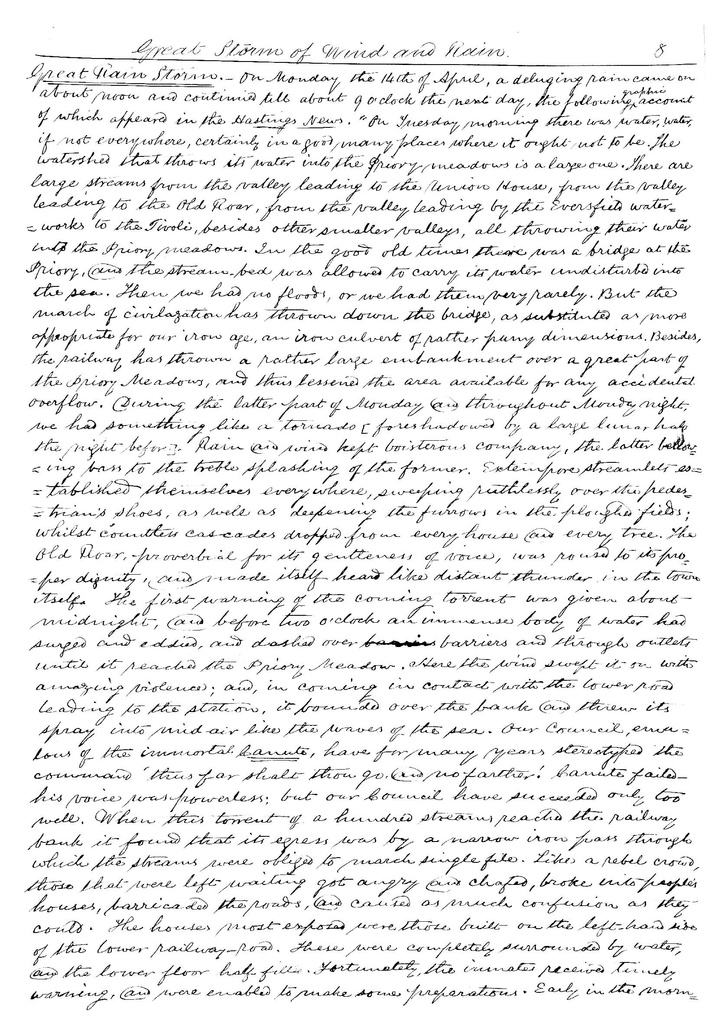 Great Storm of Wind and Rain. 8
Great Rain Storm. – On Monday the 14th of April, a deluging rain came on
about noon and continued till about 9 o'clock the next day, the following graphic account
of which appeared in the Hastings News. "On Tuesday morning there was water, water,
if not everywhere, certainly in a good many places where it ought not to be. The
watershed that throws its water into the Priory meadows is a large one. There are
large streams from the valley leading to the Union House, from the valley
leading to the Old Roar, from the valley leading by the Eversfield water=
=works to the Tivoli, besides other smaller valleys, all throwing their water
into the Priory meadows. In the good old times there was a bridge at the
Priory, and the stream-bed was allowed to carry its water undisturbed into
the sea. Then we had no floods, or we had them very rarely. But the
march of civilazation has thrown down the bridge, as substituted as more
appropriate for our iron age, an iron culvert of rather puny dimensions. Besides,
the railway has thrown a rather large embankment over a great part of
the Priory Meadows, and thus lessened the area available for any accidental
overflow. During the latter part of Monday and throughout Monday night,
we had something like a tornado [foreshadowed by a large lunar halo
the night before]. Rain and wind kept boisterous company, the latter bellow-
=ing bass to the treble splashing of the former. Extempore streamlets es=
=tablished themselves everywhere, sweeping ruthlessly over the pedes=
=trian's shoes, as well as deepening the furrows in the ploughed fields;
whilst countless cascades dropped from every house and every tree. The
Old Roar, proverbial for its gentleness of voice, was roused to its pro=
=per dignity, and made itself heard like distant thunder in the town
itself. The first warning of the coming torrent was given about
midnight, and before two o'clock an immense body of water had
surged and eddied, and dashed over barriers and through outlets
until it reached the Priory Meadow. Here the wind swept it on with
amazing violence; and, in coming in contact with the lower road
leading to the station, it bounded over the bank and threw its
spray into mid-air like the waves of the sea. Our Council, emu=
lous of the immortal Canute, have for many years stereotyped the
command 'thus far shalt thou go, and no farther.' Canute failed–
his voice was powerless; but our Council have succeeded only too
well. When this torrent of a hundred streams reached the railway
bank it found that its egress was by a narrow iron pass through
which the streams were obliged to march single file. Like a rebel crowd,
those that were left waiting got angry and chafed, broke into people's
houses, barricaded the roads, and caused as much confusion as they
could. The houses most exposed were those built on the left-hand side
of the lower railway-road. These were completely surrounded by water,
and the lower floor half filled. Fortunately, the inmates received timely
warning, and were enabled to make some preparations. Early in the morn=